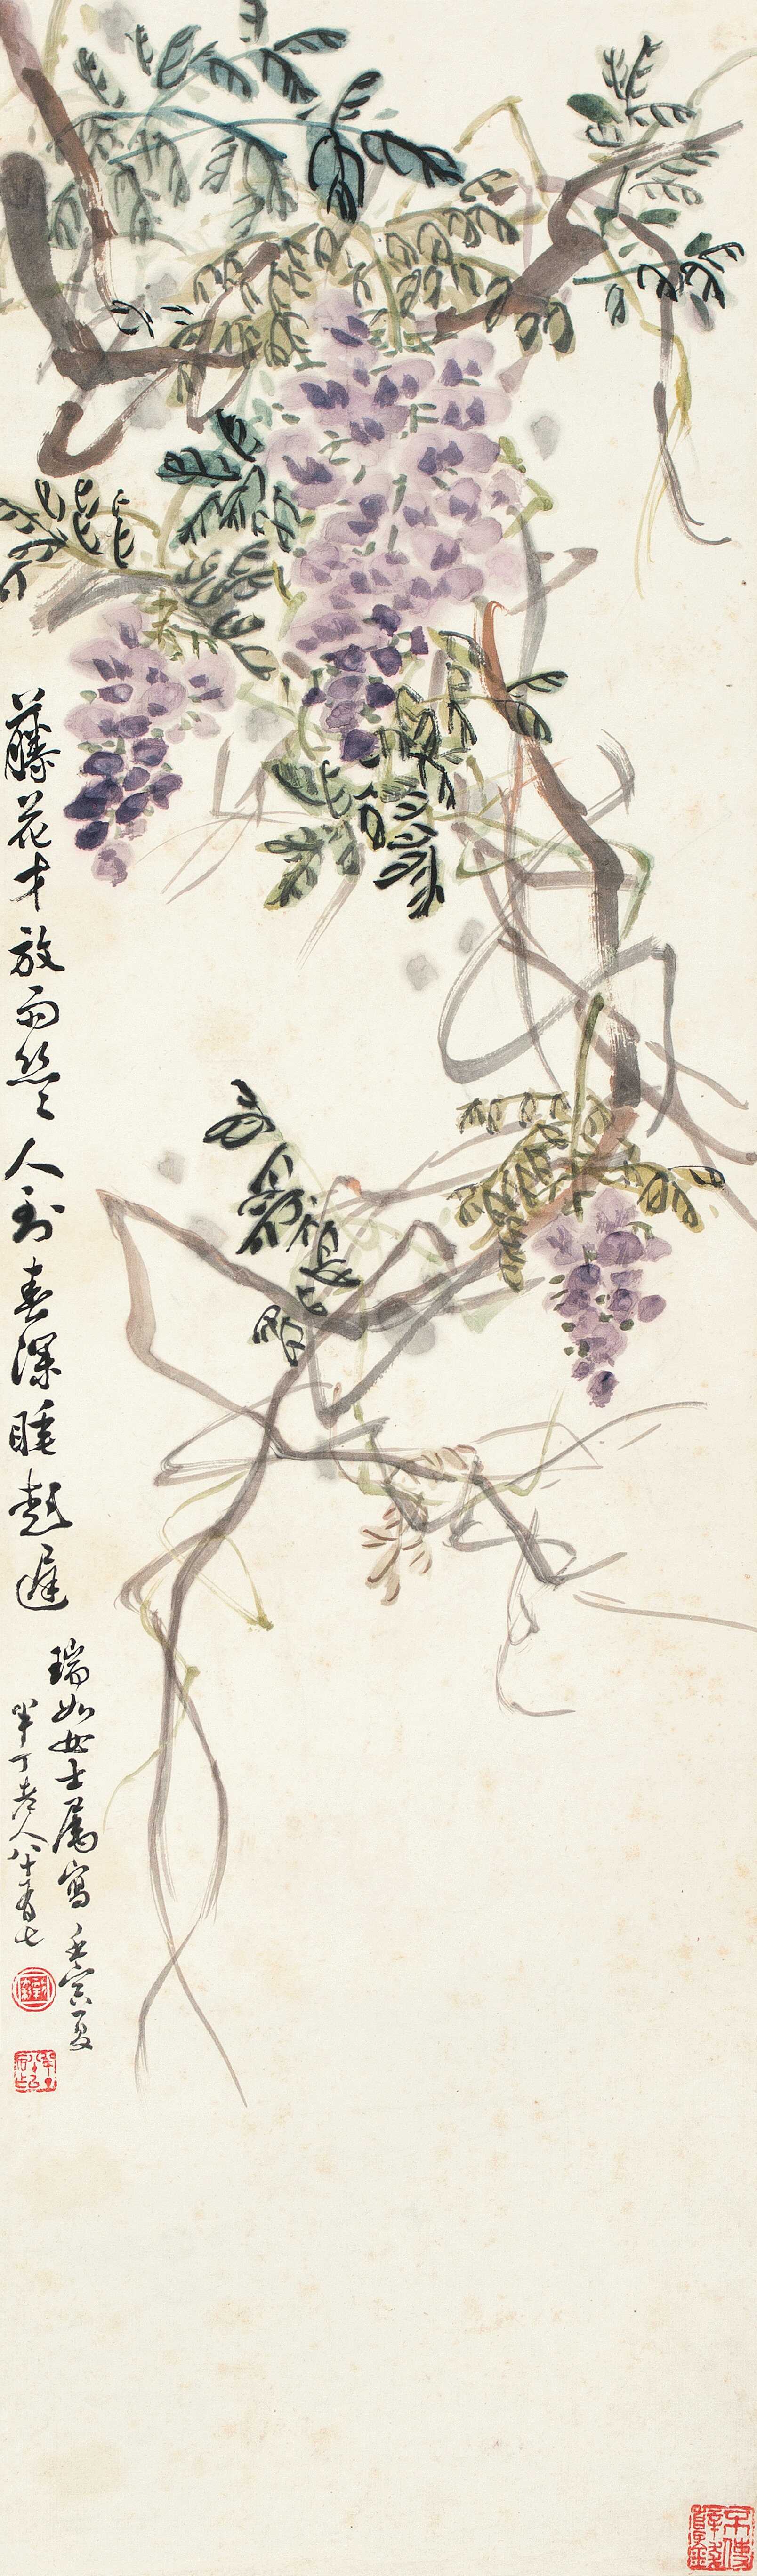 藤花才放雨丝丝人到春深睡起遲
瑞如女士属寫壬寅夏
半丁老人八十有七